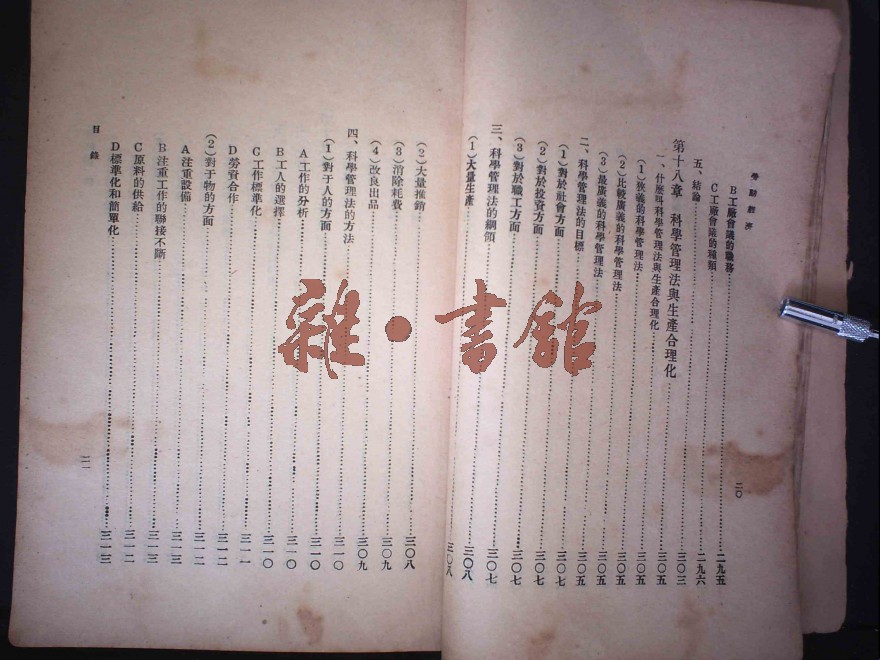 勞動經濟
B工廠會議的職務……二九五
C工廠會議的種類……二九六
五、結論……二九六
第十八章 科學管理法與生產合理化……三〇三
一、什麼叫科學管理法與生產合理化……三〇五
(1)狹義的科學管理法……三〇五
(2)比較廣義的科學管理法……三〇五
(3)最廣義的科學管理法……三〇五
二、科學管理法的目標……三〇五
(1)對於社會方面……三〇七
(2)對於投資方面……三〇七
(3)對於職工方面……三〇七
三、科學管理法的綱領……三〇七
(1)大量生產……三〇八
二〇
(2)大量推銷……三〇八
(3)消除耗費……三〇九
(4)改良出品……三〇九
四、科學管理法的方法……三一〇
(1)對于人的方面……三一〇
A工作的分析……三一〇
B工人的選擇……三一〇
C工作標準化……三一一
D勞資合作……三一二
(2)對于物的方面……三一二
A注重設備……三一三
B注重工作的聯接不斷……三一三
C原料的供給……三一二
D標準化和簡單化……三一三
目錄
二一
雜·書館